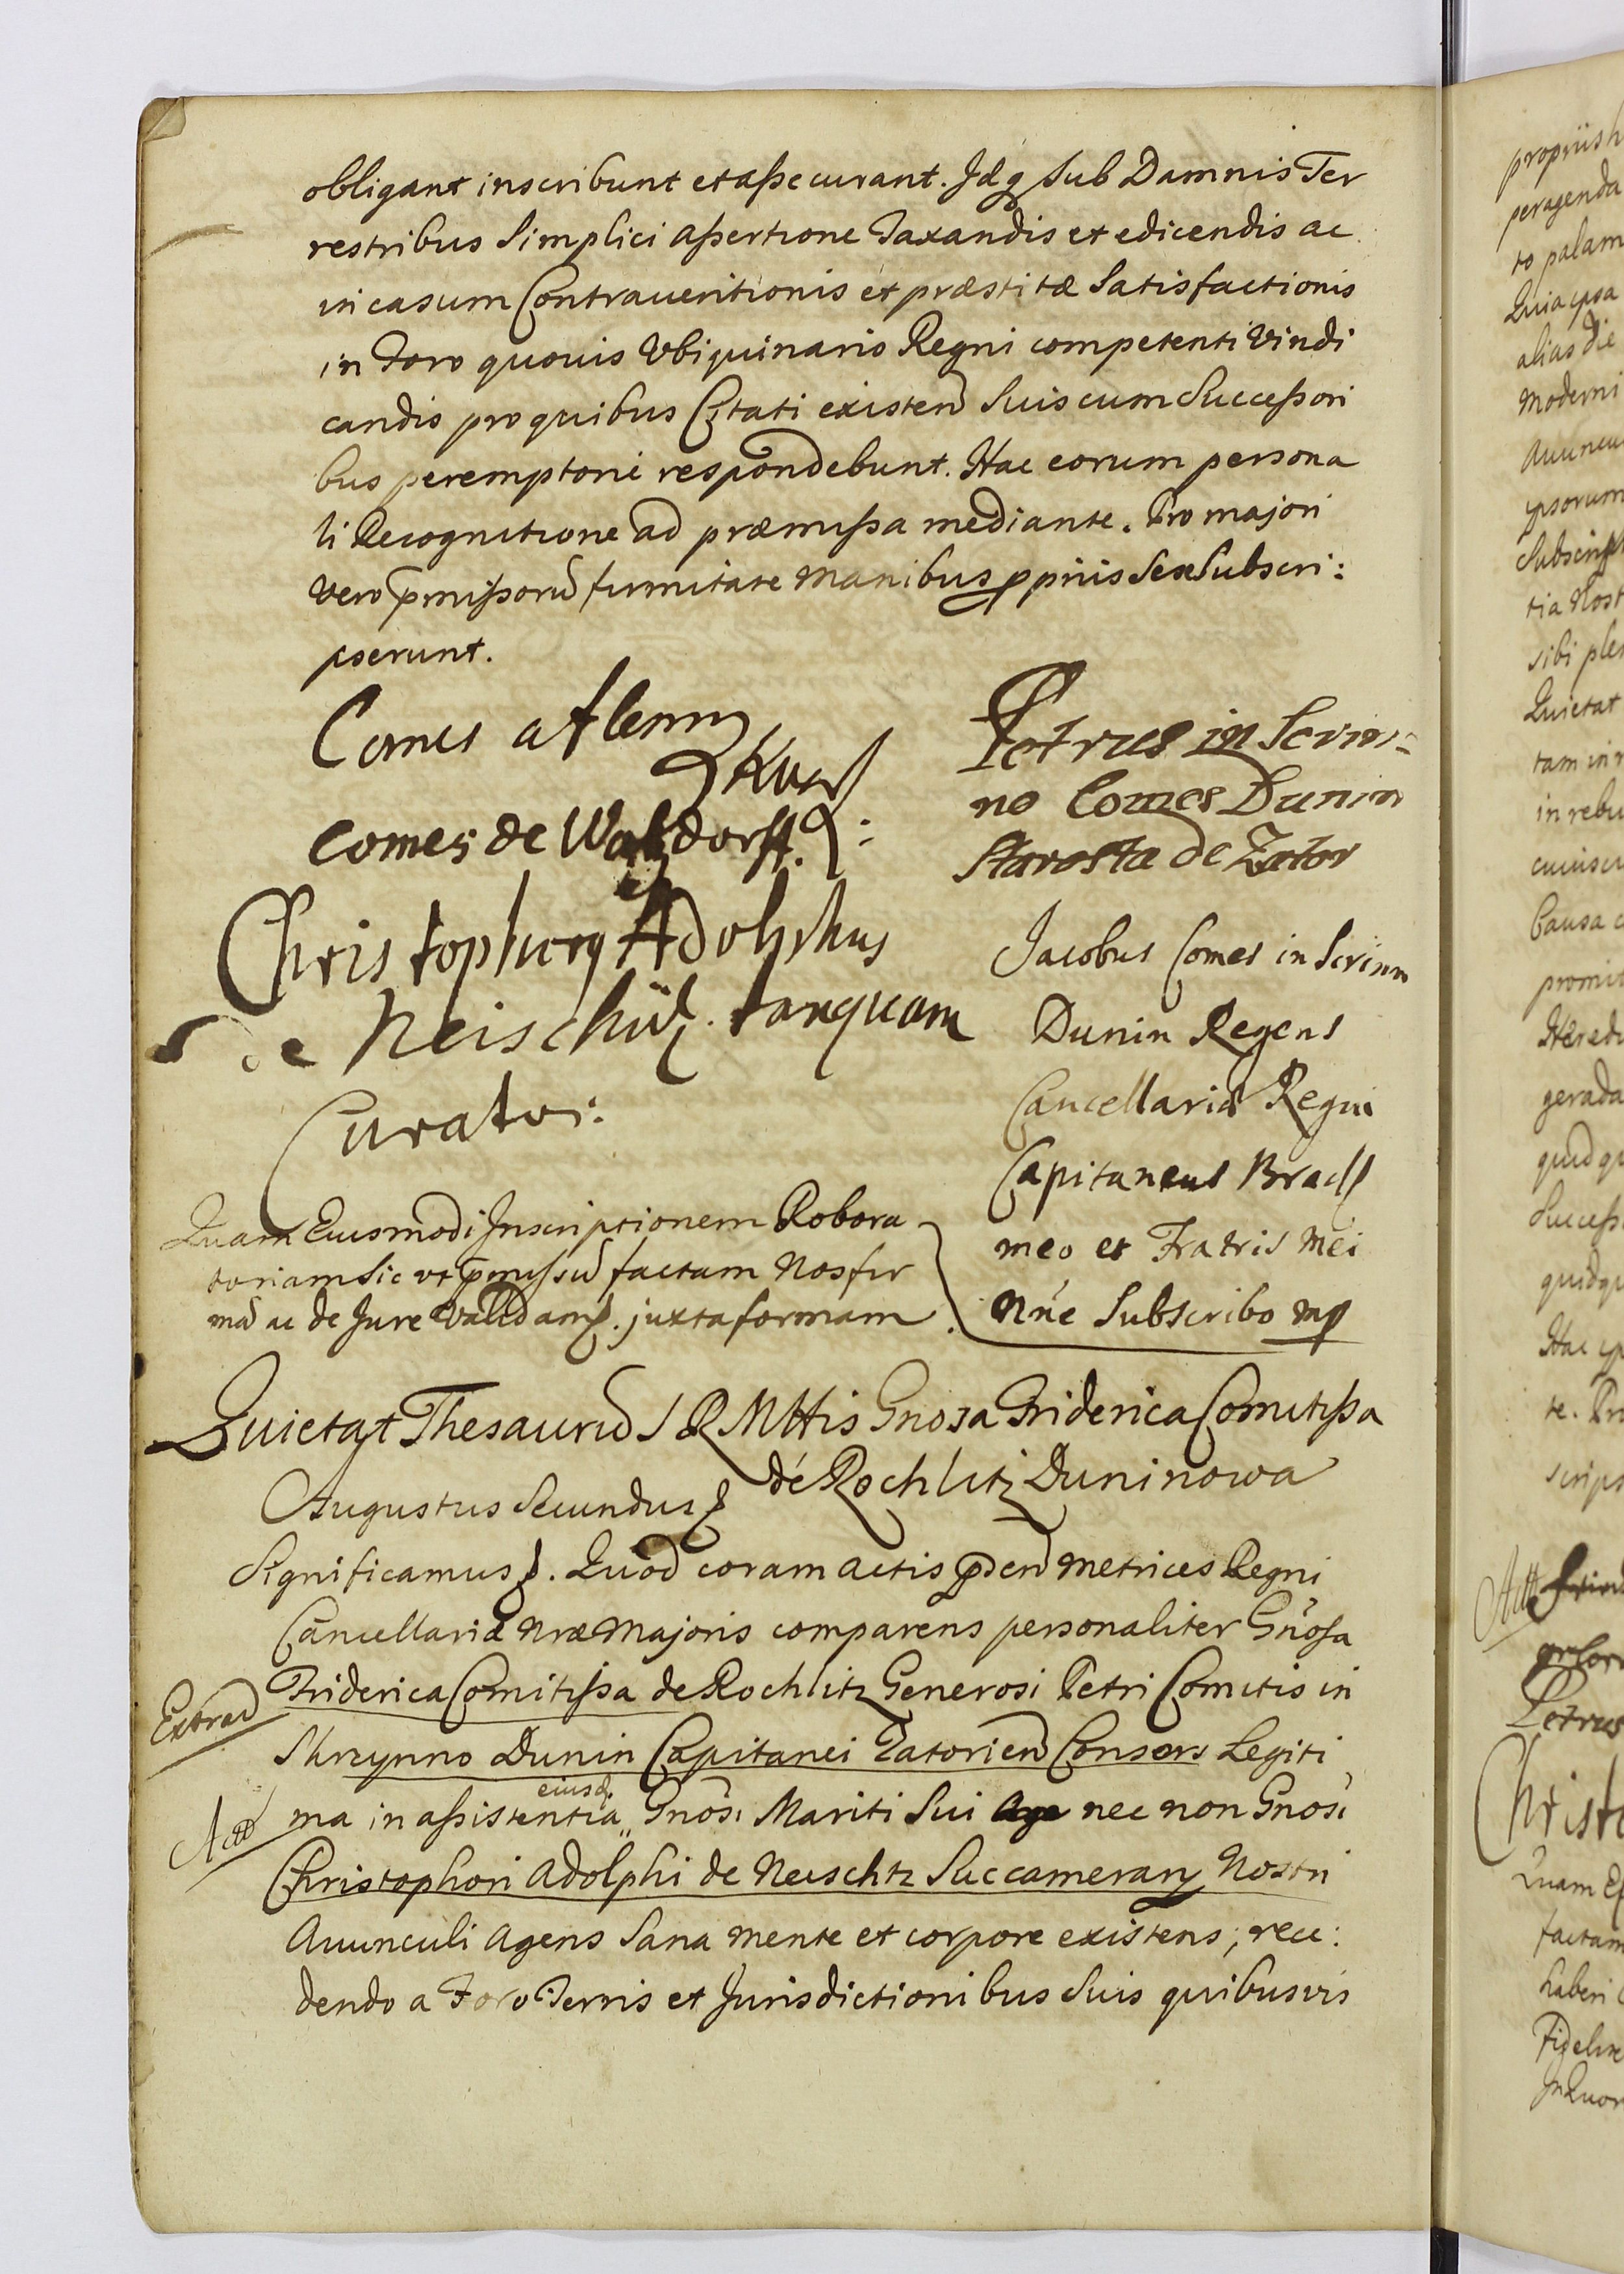 obligant inscribunt et aſsecurant. Idq sub Damnis Ter
restribus Simplici aſsertione Taxandis et edicendis ac
in casum Contrauentionis et præstitæ Satisfactionis
in Foro quouis Ubiquinario Regni competenti Vindi
candis pro quibus Citati existen Suis cum Succeſsori
bus peremptorie respondebunt. Hac eorum persona
li Recognitione ad præmiſsa mediante. Pro majori
vero pmiſsorũ firmitate manibus ppriis Sese Subscri:
pserunt.
Comes a Flemm
Comes de Watzdorff.
Christophorg Adolphus
de Neischütz. tanquam
Curator:
Petrus in Scrin:
no Comes Dunin
Starosta de Zator
Jacobus Comes in Scrinn
Dunin Regens
Cancellariæ Regni
Capitaneus Bracl
meo et Fratris Mei
Nñe Subscribo mp
Quam Eiusmodi Inscriptionem Robora
toriam Sic ut pmiſsũ factam Nos fir
mã ac de Jure Validam. juxta formam
Quietat Thesaurũ S R Mttis Gnosa Friderica Comitiſsa
de Rochlitz Duninowa
Augustus Secundus
Significamus. Quod coram actis pden Metrices Regni
Cancellariæ Nræ Majoris comparens personaliter Gñosa
Extrad
Friderica Comitiſsa de Rochlitz Generosi Petri Comitis in
Skrzynno Dunin Capitanei Zatorien Consors Legiti
eiusd
Act
ma in aſsistentia Gnosi Mariti Sui nec non Gnosi
Christophori Adolphi de Neischtz Succamerary Nostri
Auunculi Agens Sana mente et corpore existens, rece:
dendo a Foro Terris et Jurisdictionibus Suis quibusvis
propriis
peragenda
to palam
Quia ipsa
alias die
Moderni
ipsorum
tia Nost
sibi ple
Quietat
tam in
in rebu
Causa
Succeſs
Petrus
Christo
Quam
factam
haberi